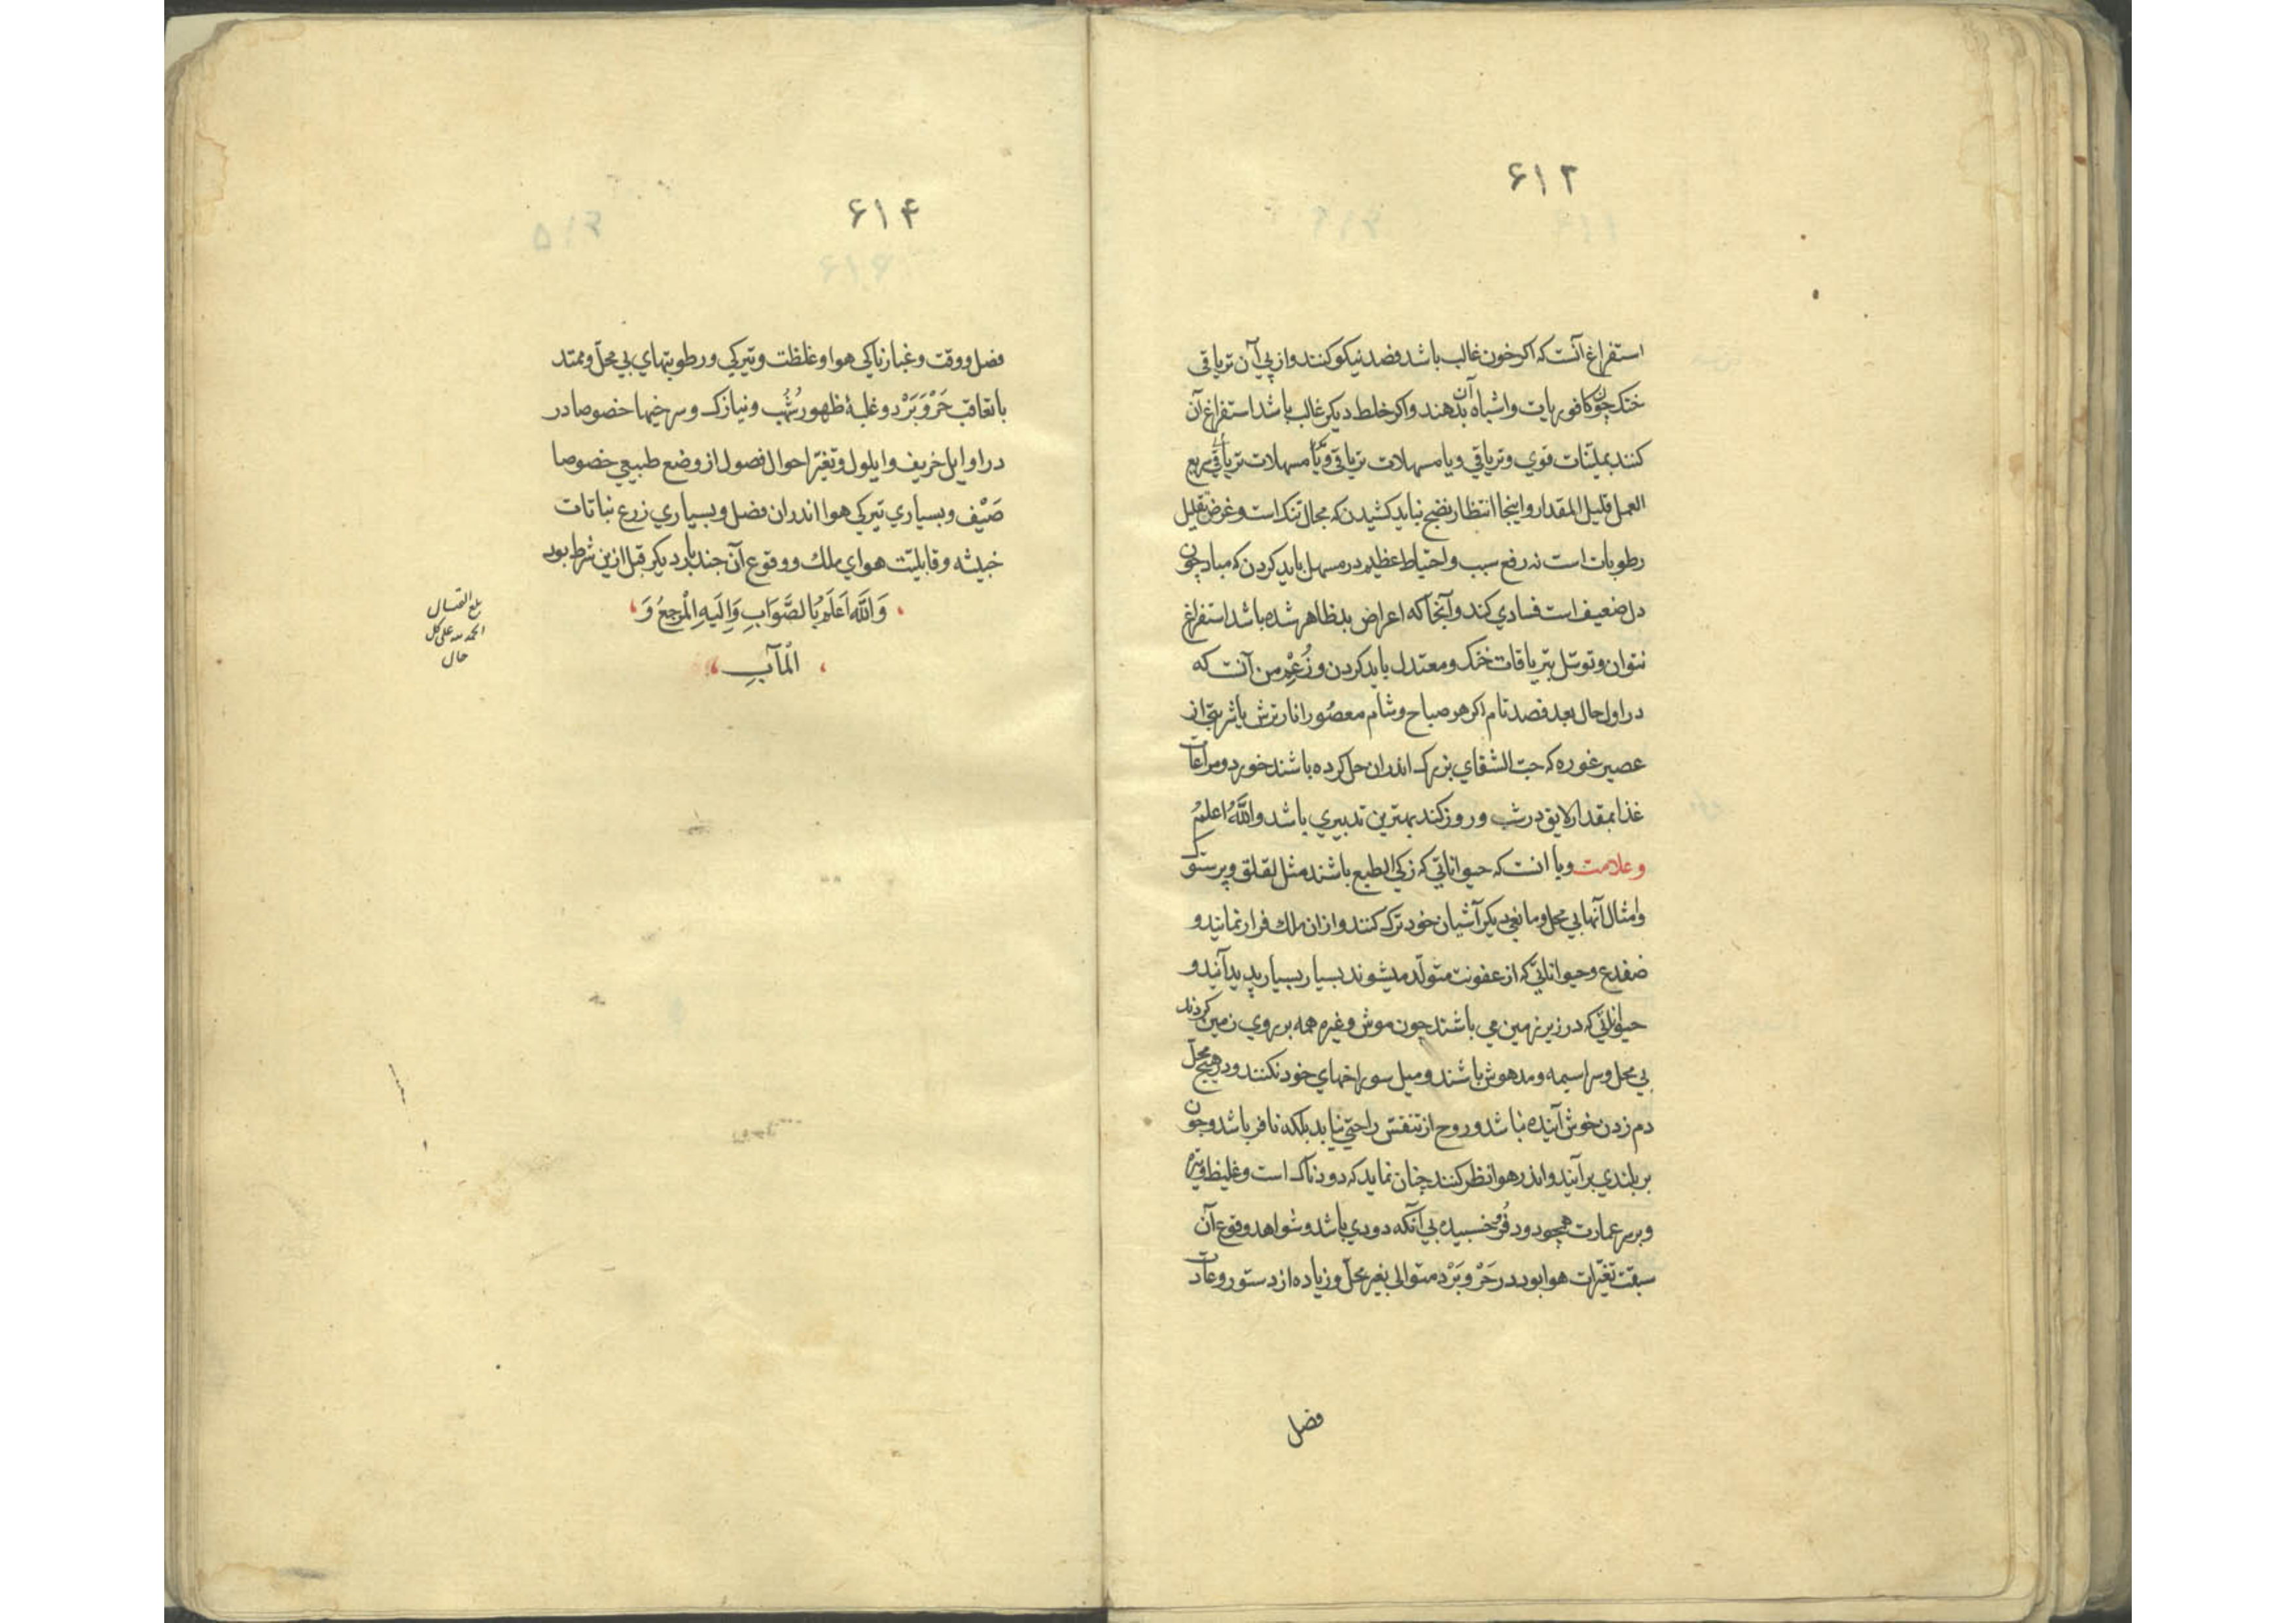 ۶۱۳
استفراغ آنست که اکر خون غالب باشد فصد نیکو کنند و از پی آن تریاقی
خنک چون کافوریات و اشباه آن بدهند و اکر خلط دیکر غالب باشد استفراغ آن
کنند بملینات قوی و تریاقی و یا مسهلات تریاقی و یا مسهلات تریاقی سریع
العمل قلیل المقدار و اینجا انتظار نضج نباید کشیدن که مجال تنک است و غرض تقلیل
رطوبات است نه رفع سبب و احتیاط عظیم در مسهل باید کردن که مبادا چون
دل ضعیف است فسادی کند و آنجا که اعراض بد ظاهر شده باشد استفراغ
نتوان و توسّل بتریاقات خنک و معتدل باید کردن و زُعمِ من آنست که
در اول حال بعد فصد تام اکر هر صباح و شام معصُور انار ترش یا شربتی از
عصیر غوره که حبّ الشفای بزرک اندران حل کرده باشند خورد و مراعات
غذا بمقدار لایق در شب و روز کند بهترین تدبیری باشد واللّهُ اعلمُ
و علامت وبا انست که حیواناتی که زکی الطبع باشند مثل لقلق و پرستوک
و امثال آنها بی محل و مانعی دیکر آشیان خود ترک کنند و ازان ملک فرار نمایند و
ضفدع و حیواناتی که از عفونت متولّد میشوند بسیار بسیار پدید آیند و
حیواناتی که در زیر زمین می باشند چون موش و غیره همه بر روی زمین کردند
بی محل و سراسیمه و مدهوش باشند و میل سوراخهای خود نکنند و در هیچ محلّ
دم زدن خوش آینده نباشد و روح از تنفّس راحتی نیابد بلکه نافر باشد و چون
بر بلندی برآیند و اندر هوا نظر کنند چنان نماید که دودناک است و غلیظ و تیره
و بر سر عمارت همچو دود فُرو خسبیده بی آنکه دودی باشد و شواهد وقوع آن
سبقت تغیّرات هوا بود در حَرّ و بَرْد متوالی بغیر محلّ و زیاده از دستور و عادت
فصل
۶۱۴
فصل و وقت و غبارناکی هوا و غلظت و تیرکی و رطوبتهای بی محلّ و ممتد
با تعاقب حَرّ و بَرْد و غلبهٔ ظهور شُهُب و نیازک و سرخیها خصوصا در
در اوایل خریف و ایلول و تغیّر احوال فصول از وضع طبیعی خصوصا
صَیْف و بسیاری تیرکی هوا اندران فصل و بسیاری زرع نباتات
خبیثه و قابلیّت هوای ملک و وقوع آن چند بار دیکر قبل ازین شرط بود
وَاللّه اَعلَمُ بِالصَّوَابِ وَاِلَیهِ الْمَرجعُ وَ
الْمآبِ
بلغ
الحمد لله علی کل
حال